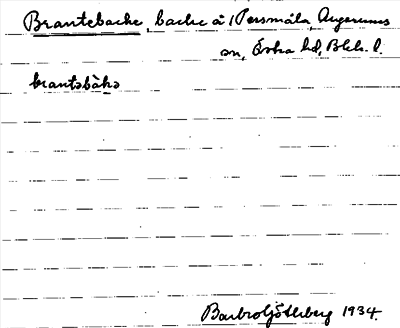 Brantebacke, backe å 1 Persmåla, Augerums
sn, Östra hd, Blek. l.
brantəbàkə
Barbro Götlberg 1934.